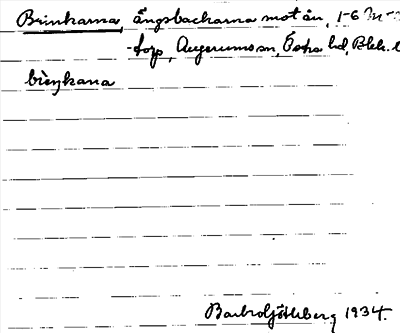 Brinkarna, Ängsbackarna mot ån, 1-6 M
-torp, Augerums sn, Östra hd, Blek. l
brıŋkana
Barbro Götleberg 1934.